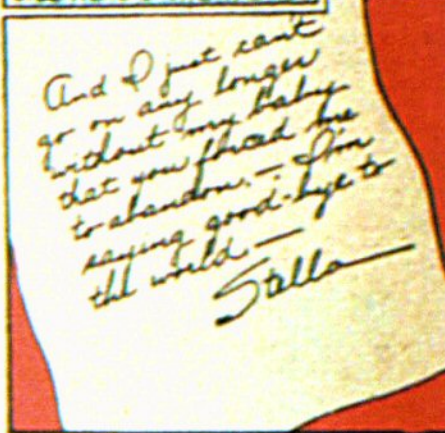 And I just can't
go on any longer
without my baby
that you forced me
to abandon. — I'm
saying good-bye to
the world —
Stella